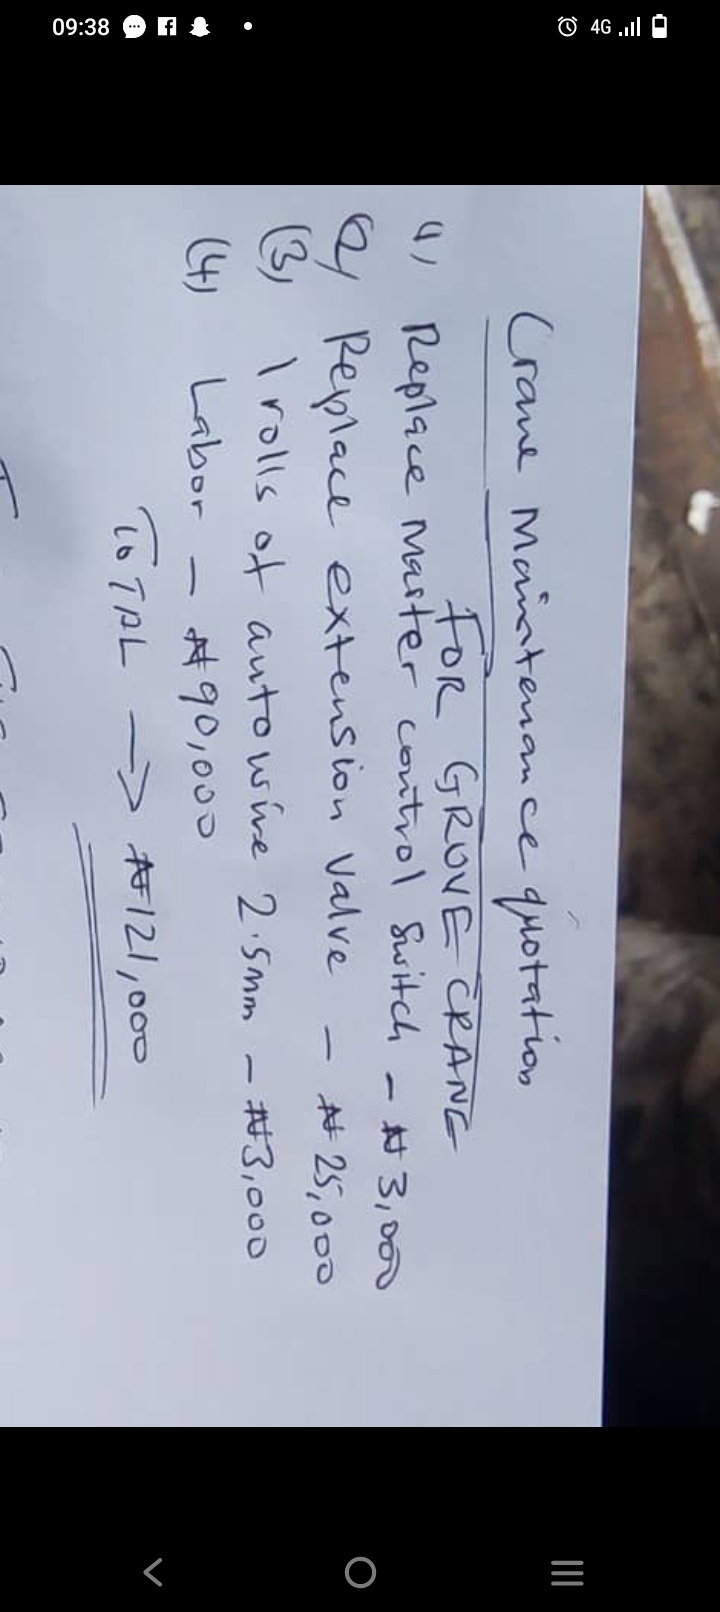 Crane Maintenance quotation
FOR GROVE CRANE
(1) Replace Master control Switch - ₦3,000
(2) Replace extension valve - ₦25,000
(3) 1 rolls of autowire 2.5mm - ₦3,000
(4) Labor - ₦90,000
TOTAL → ₦121,000
09:38
4G